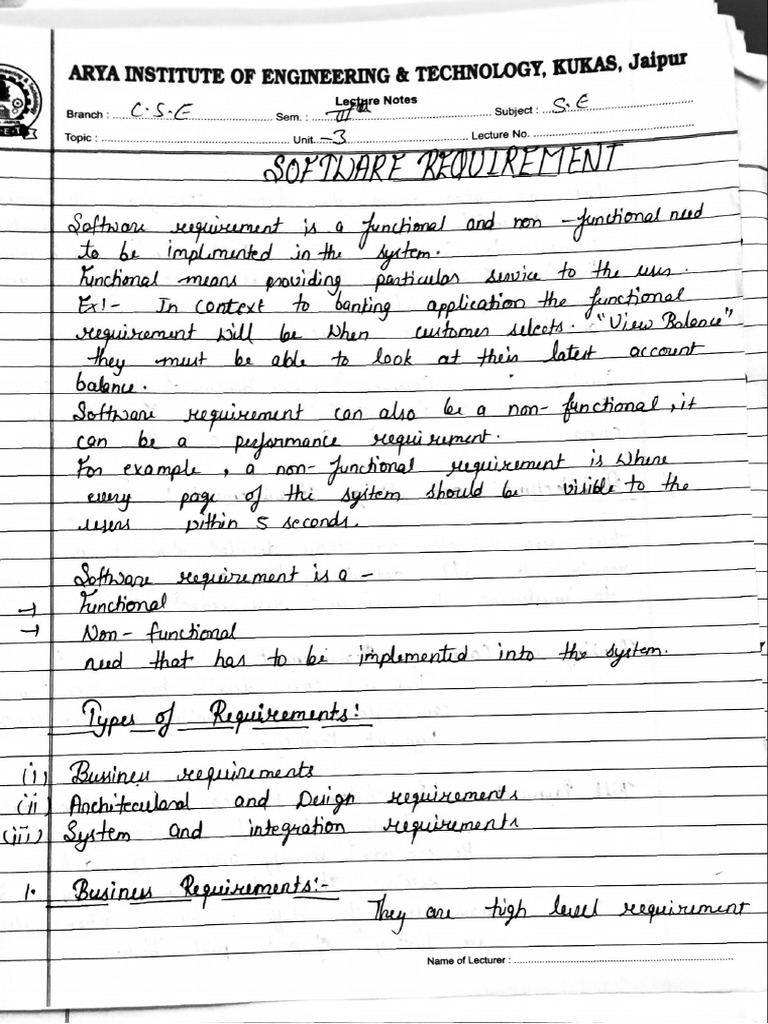 ARYA INSTITUTE OF ENGINEERING & TECHNOLOGY, KUKAS, Jaipur
Lecture Notes
Branch : C.S.E Sem. : Subject : S.E
Topic : Unit -3 Lecture No.
SOFTWARE REQUIREMENT
Software requirement is a functional and non -functional need
to be implmented in the system.
Functional means providing particular service to the user.
Ex!- In context to banking application the functional
requirement will be when customer selects. "View Balance"
they must be able to look at their latest account
balance.
Software requirement can also be a non- functional, it
can be a performance requirement.
For example, a non- functional requirement is where
every page of the system should be visible to the
users within 5 seconds.
Software requirement is a -
→ Functional
→ Non - functional
need that has to be implemented into the system.
Types of Requirements:
(i) Bussiness requirements
(ii) Architecural and Design requirements
(iii) System and integration requirements
1. Business Requirements:-
They are high level requirement
Name of Lecturer :